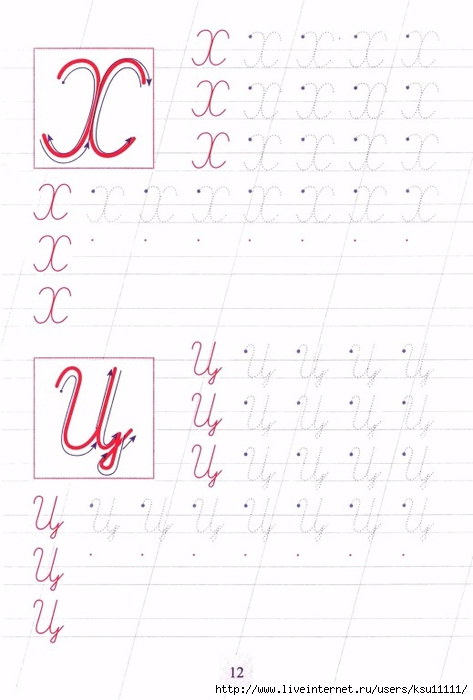 Х
Х Х Х Х Х
Х Х Х Х Х
Х Х Х Х Х
Х Х Х Х Х Х Х Х
Х
Х
Ц
Ц Ц Ц Ц Ц
Ц Ц Ц Ц Ц
Ц Ц Ц Ц Ц
Ц Ц Ц Ц Ц Ц Ц Ц
Ц
Ц
12
http://www.liveinternet.ru/users/ksu11111/